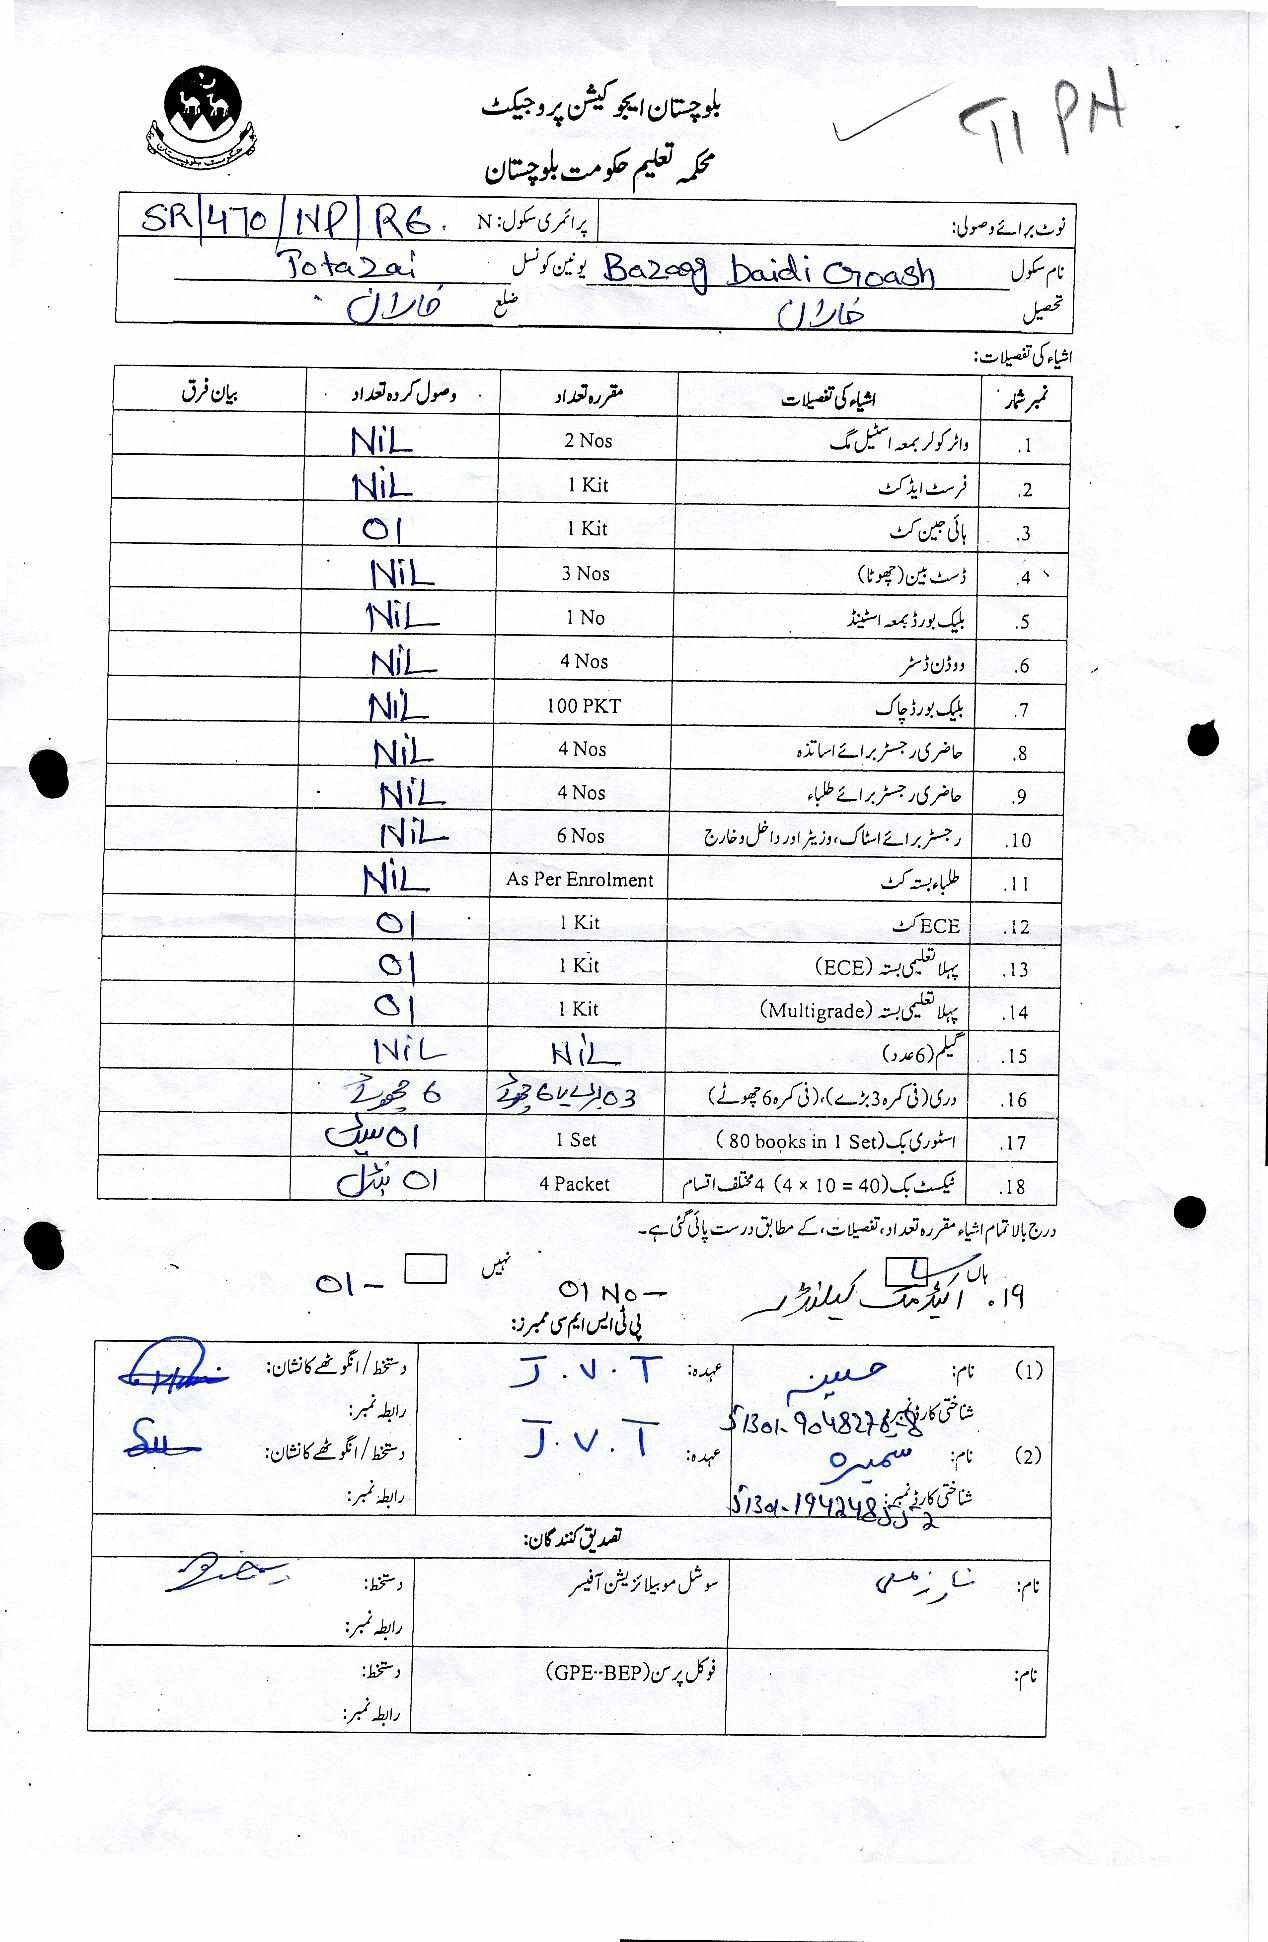 TIPN
بلوچستان ایجوکیشن پروجیکٹ
محکمہ تعلیم حکومت بلوچستان
نوٹ برائے وصولی: پرائمری سکول: N SR/470/NP/RG.
نام سکول Bazogg Daidi Croash یونین کونسل Totazai
تحصیل خاران ضلع خاران
اشیاء کی تفصیلات:
نمبر شمار اشیاء کی تفصیلات مقررہ تعداد وصول کردہ تعداد بیان فرق
1. واٹر کولر بمعہ اسٹیل مگ 2 Nos NiL
2. فرسٹ ایڈ کٹ 1 Kit NiL
3. ہائی جین کٹ 1 Kit 01
4. ڈسٹ بین (چھوٹا) 3 Nos NiL
5. بلیک بورڈ بمعہ اسٹینڈ 1 No NiL
6. ووڈن ڈسٹر 4 Nos NiL
7. بلیک بورڈ چاک 100 PKT NiL
8. حاضری رجسٹر برائے اساتذہ 4 Nos NiL
9. حاضری رجسٹر برائے طلباء 4 Nos NiL
10. رجسٹر برائے اسٹاک، وزیٹر اور داخل و خارج 6 Nos NiL
11. طلباء بستہ کٹ As Per Enrolment NiL
12. ECE کٹ 1 Kit 01
13. پہلا تعلیمی بستہ (ECE) 1 Kit 01
14. پہلا تعلیمی بستہ (Multigrade) 1 Kit 01
15. گیلم (6 عدد) NiL NiL
16. دری (فی کمرہ 3 بڑے)، (فی کمرہ 6 چھوٹے) 03 بڑے یا 6 چھوٹے 6 چھوٹے
17. اسٹوری بک (80 books in 1 Set) 1 Set 01 سیٹ
18. ٹیکسٹ بک (4 x 10 = 40) 4 مختلف اقسام 4 Packet 01 بنڈل
درج بالا تمام اشیاء مقررہ تعداد، تفصیلات، کے مطابق درست پائی گئی ہے۔
ہاں نہیں
19. اکیڈمک کیلنڈر 01 No - 01 -
پی ٹی ایس ایم سی ممبرز:
(1) نام: حسینہ عہدہ: J.V.T دستخط / انگوٹھے کا نشان:
شناختی کارڈ نمبر: 51301-9048278-8 رابطہ نمبر:
(2) نام: سمیرہ عہدہ: J.V.T دستخط / انگوٹھے کا نشان:
شناختی کارڈ نمبر: 51301-194248552 رابطہ نمبر:
تصدیق کنندگان:
نام: سوشل موبیلائزیشن آفیسر دستخط:
رابطہ نمبر:
نام: فوکل پرسن (GPE--BEP) دستخط:
رابطہ نمبر: